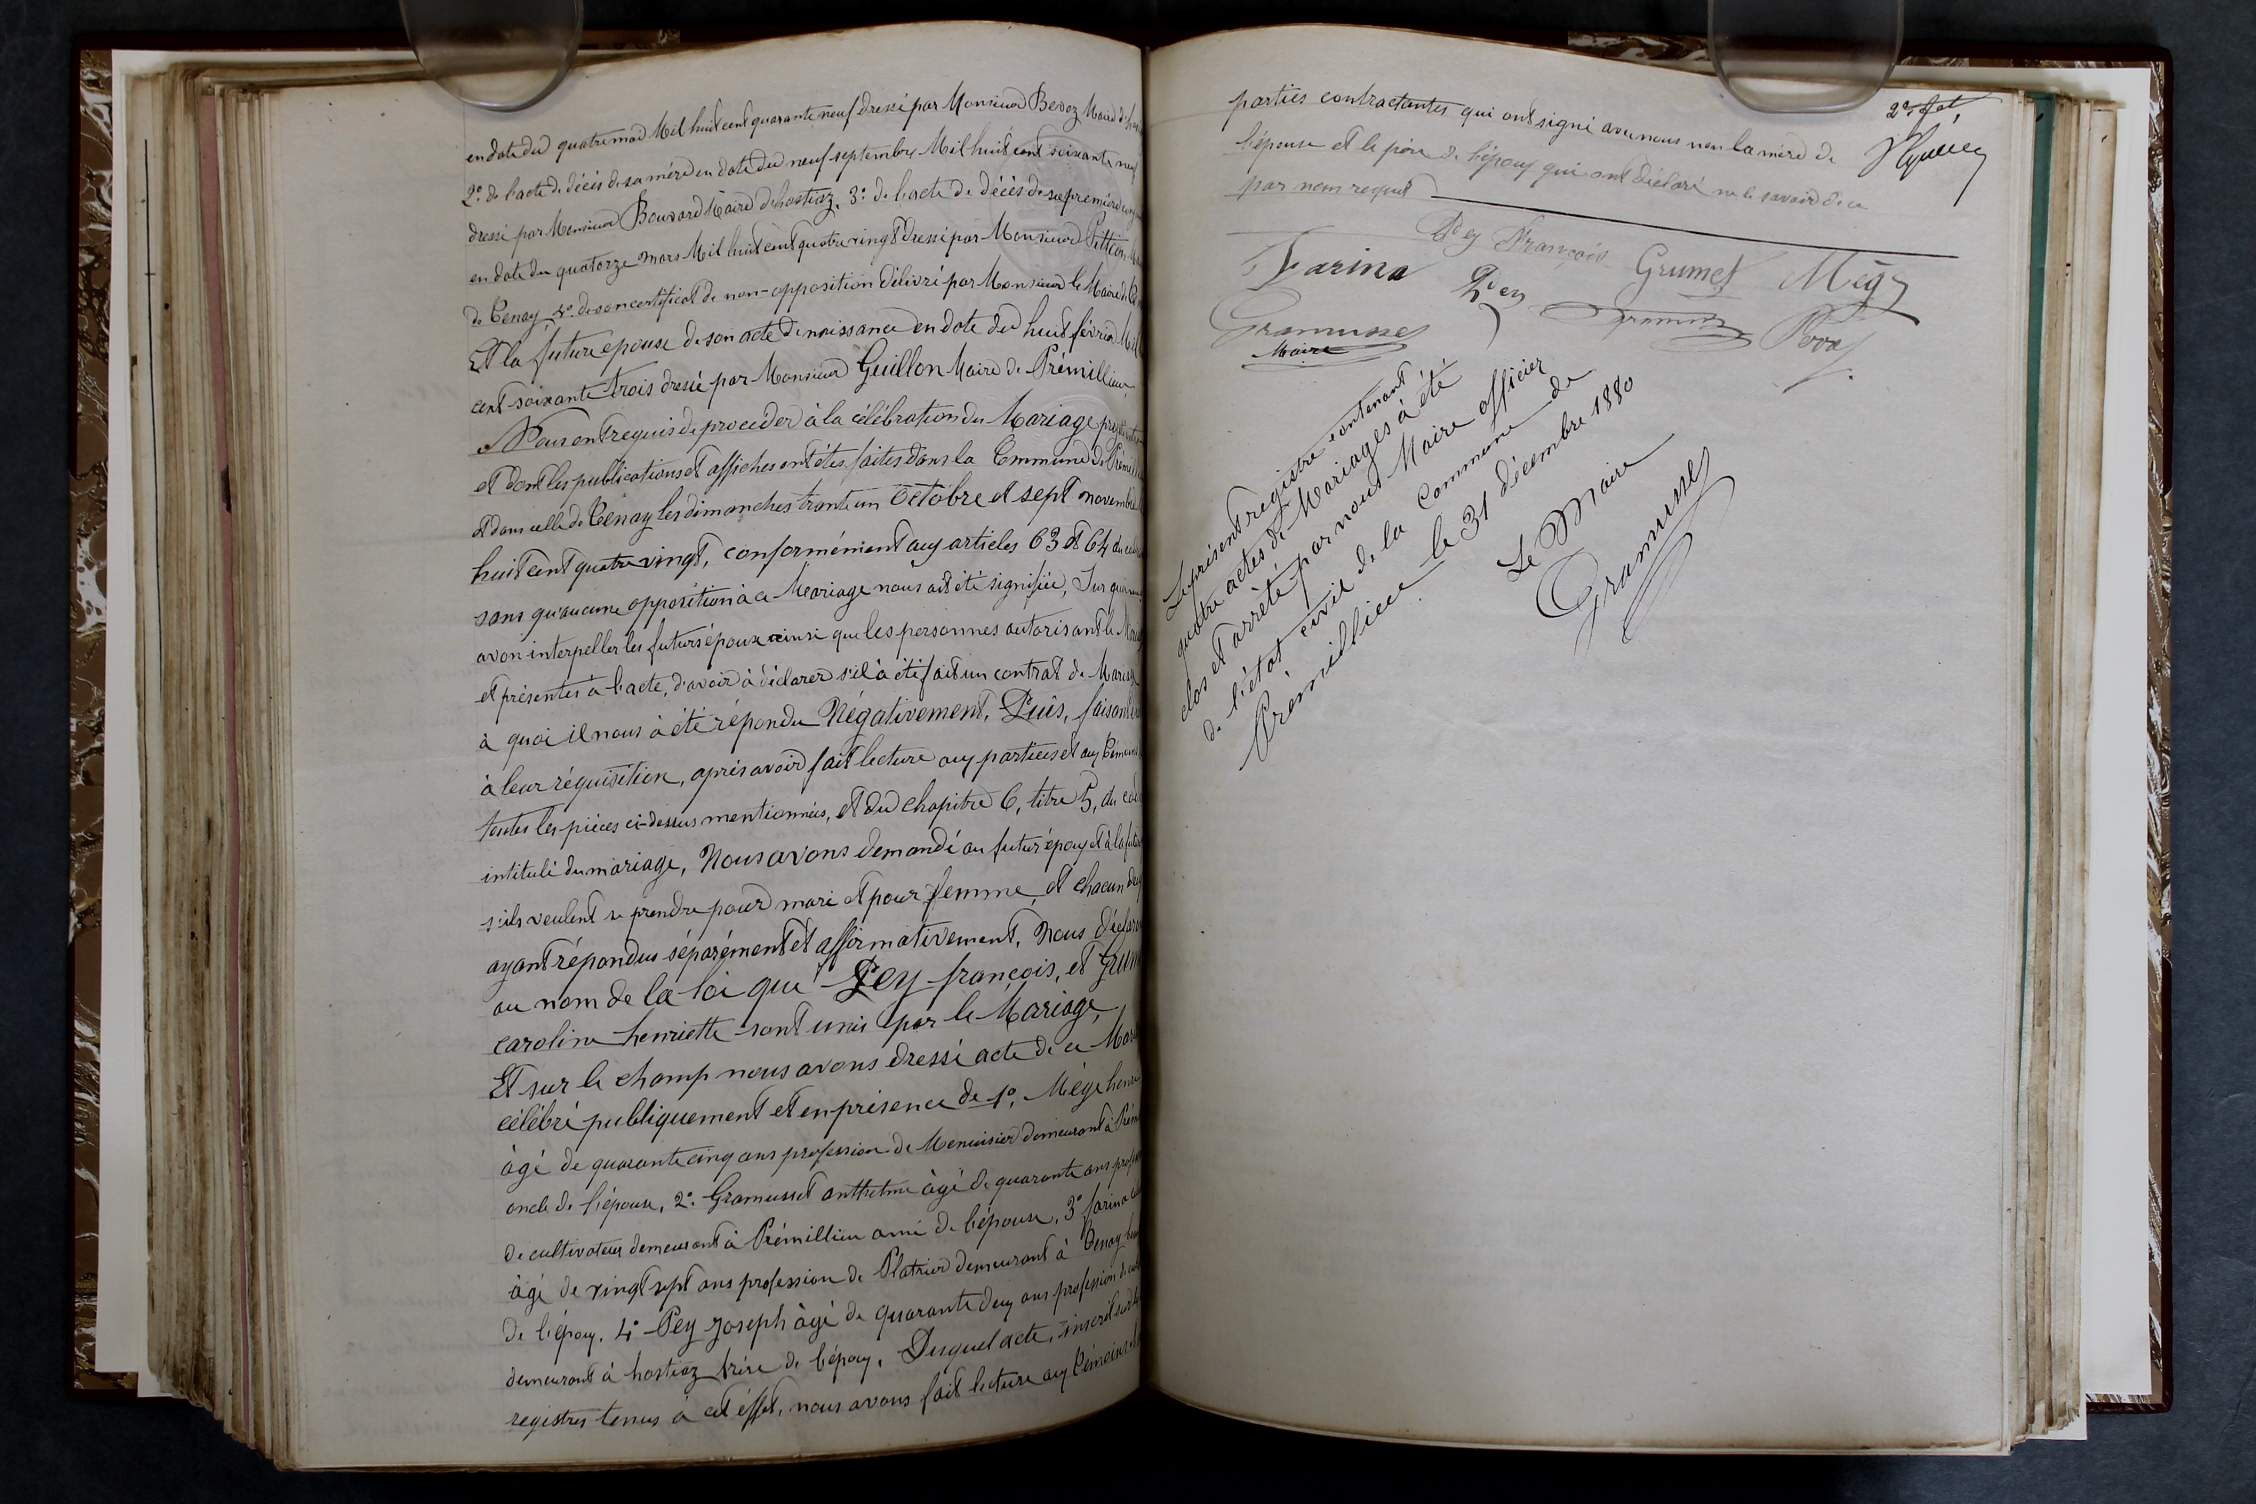 en date du quatre mai Mil huit cent quarante neuf dressé par Monsieur Bevoz Maire
2º. de l'acte de décès de sa mère en date du neuf septembre Mil huit cent soixante neuf
dressé par Monsieur Bouvard Maire d'hostiaz, 3º. de l'acte de décès de sa première
en date du quatorze mars Mil huit cent quatre vingt dressé par Monsieur
de Tenay 4º. de son certificat de non-opposition délivré par Monsieur le Maire de
Et la future épouse de son acte de naissance en date du huit février Mil
cent soixante trois dressé par Monsieur Guillon Maire de Prémillieu,
Nous ont requis de procéder à la célébration du Mariage
et dont les publications et affiches ont étés faites dans la Commune de
et dans celle de Tenay les dimanches trante un Octobre et sept novembre
huit cent quatre vingt, conformément aux articles 63 et 64 du
sans qu'aucune opposition à ce Mariage nous ait été signifiée, Sur quoi
avon interpeller les futurs époux ainsi que les personnes autorisant le
et présentes à l'acte, d'avoir à déclarer s'il à été fait un contrat de Mariage
à quoi il nous à été répondu Négativement, Puis, faisant
à leur réquisition, après avoir fait lecture aux parties et aux témoins
toutes les pièces ci-dessus mentionnées, et du chapitre 6, titre 5, du
intitulé du mariage, Nous avons demandé au futur époux et à la
s'ils veulent se prendre pour mari et pour femme, et chacun
ayant répondus séparément et affirmativement, Nous
au nom de la loi que Pey françois, et
caroline henriette sont unis par le Mariage,
Et sur le champ nous avons dressé acte de ce
célébré publiquement et en présence de 1º, Mège
âgé de quarante cinq ans profession de Menuisier demeurant à
oncle de l'épouse, 2º. Gramusset anthelme âgé de quarante ans
de cultivateur demeurant à Prémillieu ami de l'épouse, 3º farina
âgé de vingt sept ans profession de Platrier demeurant à Tenay
de l'époux, 4º Pey Joseph âgé de quarante deux ans profession de
demeurant à hostiaz frère de l'époux. Duquel acte, inscrit sur
registres tenus à cet effet, nous avons fait lecture aux témoins
parties contractantes qui ont signé avec nous non la mère de
l'épouse et le père de l'époux qui ont déclaré ne le savoir de ce
par nom requis
Pey François Grumet Mège
Farina Pey
Gramusset
Maire
Le présent registre contenant
quatre actes de Mariages à été
clos et arrêté par nous Maire officier
de l'état civil de la Commune de
Prémillieu le 31 décembre 1880
Le Maire
Gramusset